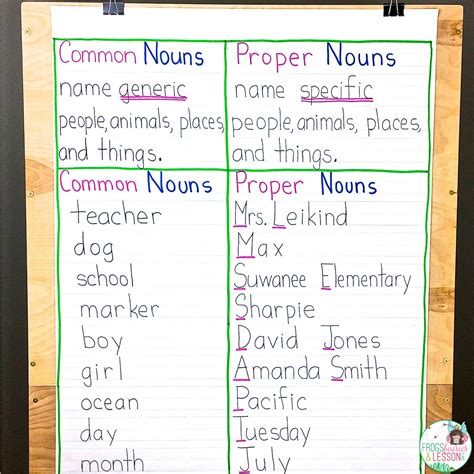 Common Nouns
name generic
people, animals, places,
and things.
Proper Nouns
name specific
people, animals, places,
and things.
Common Nouns
teacher
dog
school
marker
boy
girl
ocean
day
month
Proper Nouns
Mrs. Leikind
Max
Suwanee Elementary
Sharpie
David Jones
Amanda Smith
Pacific
Tuesday
July
FROGS
& LESSON